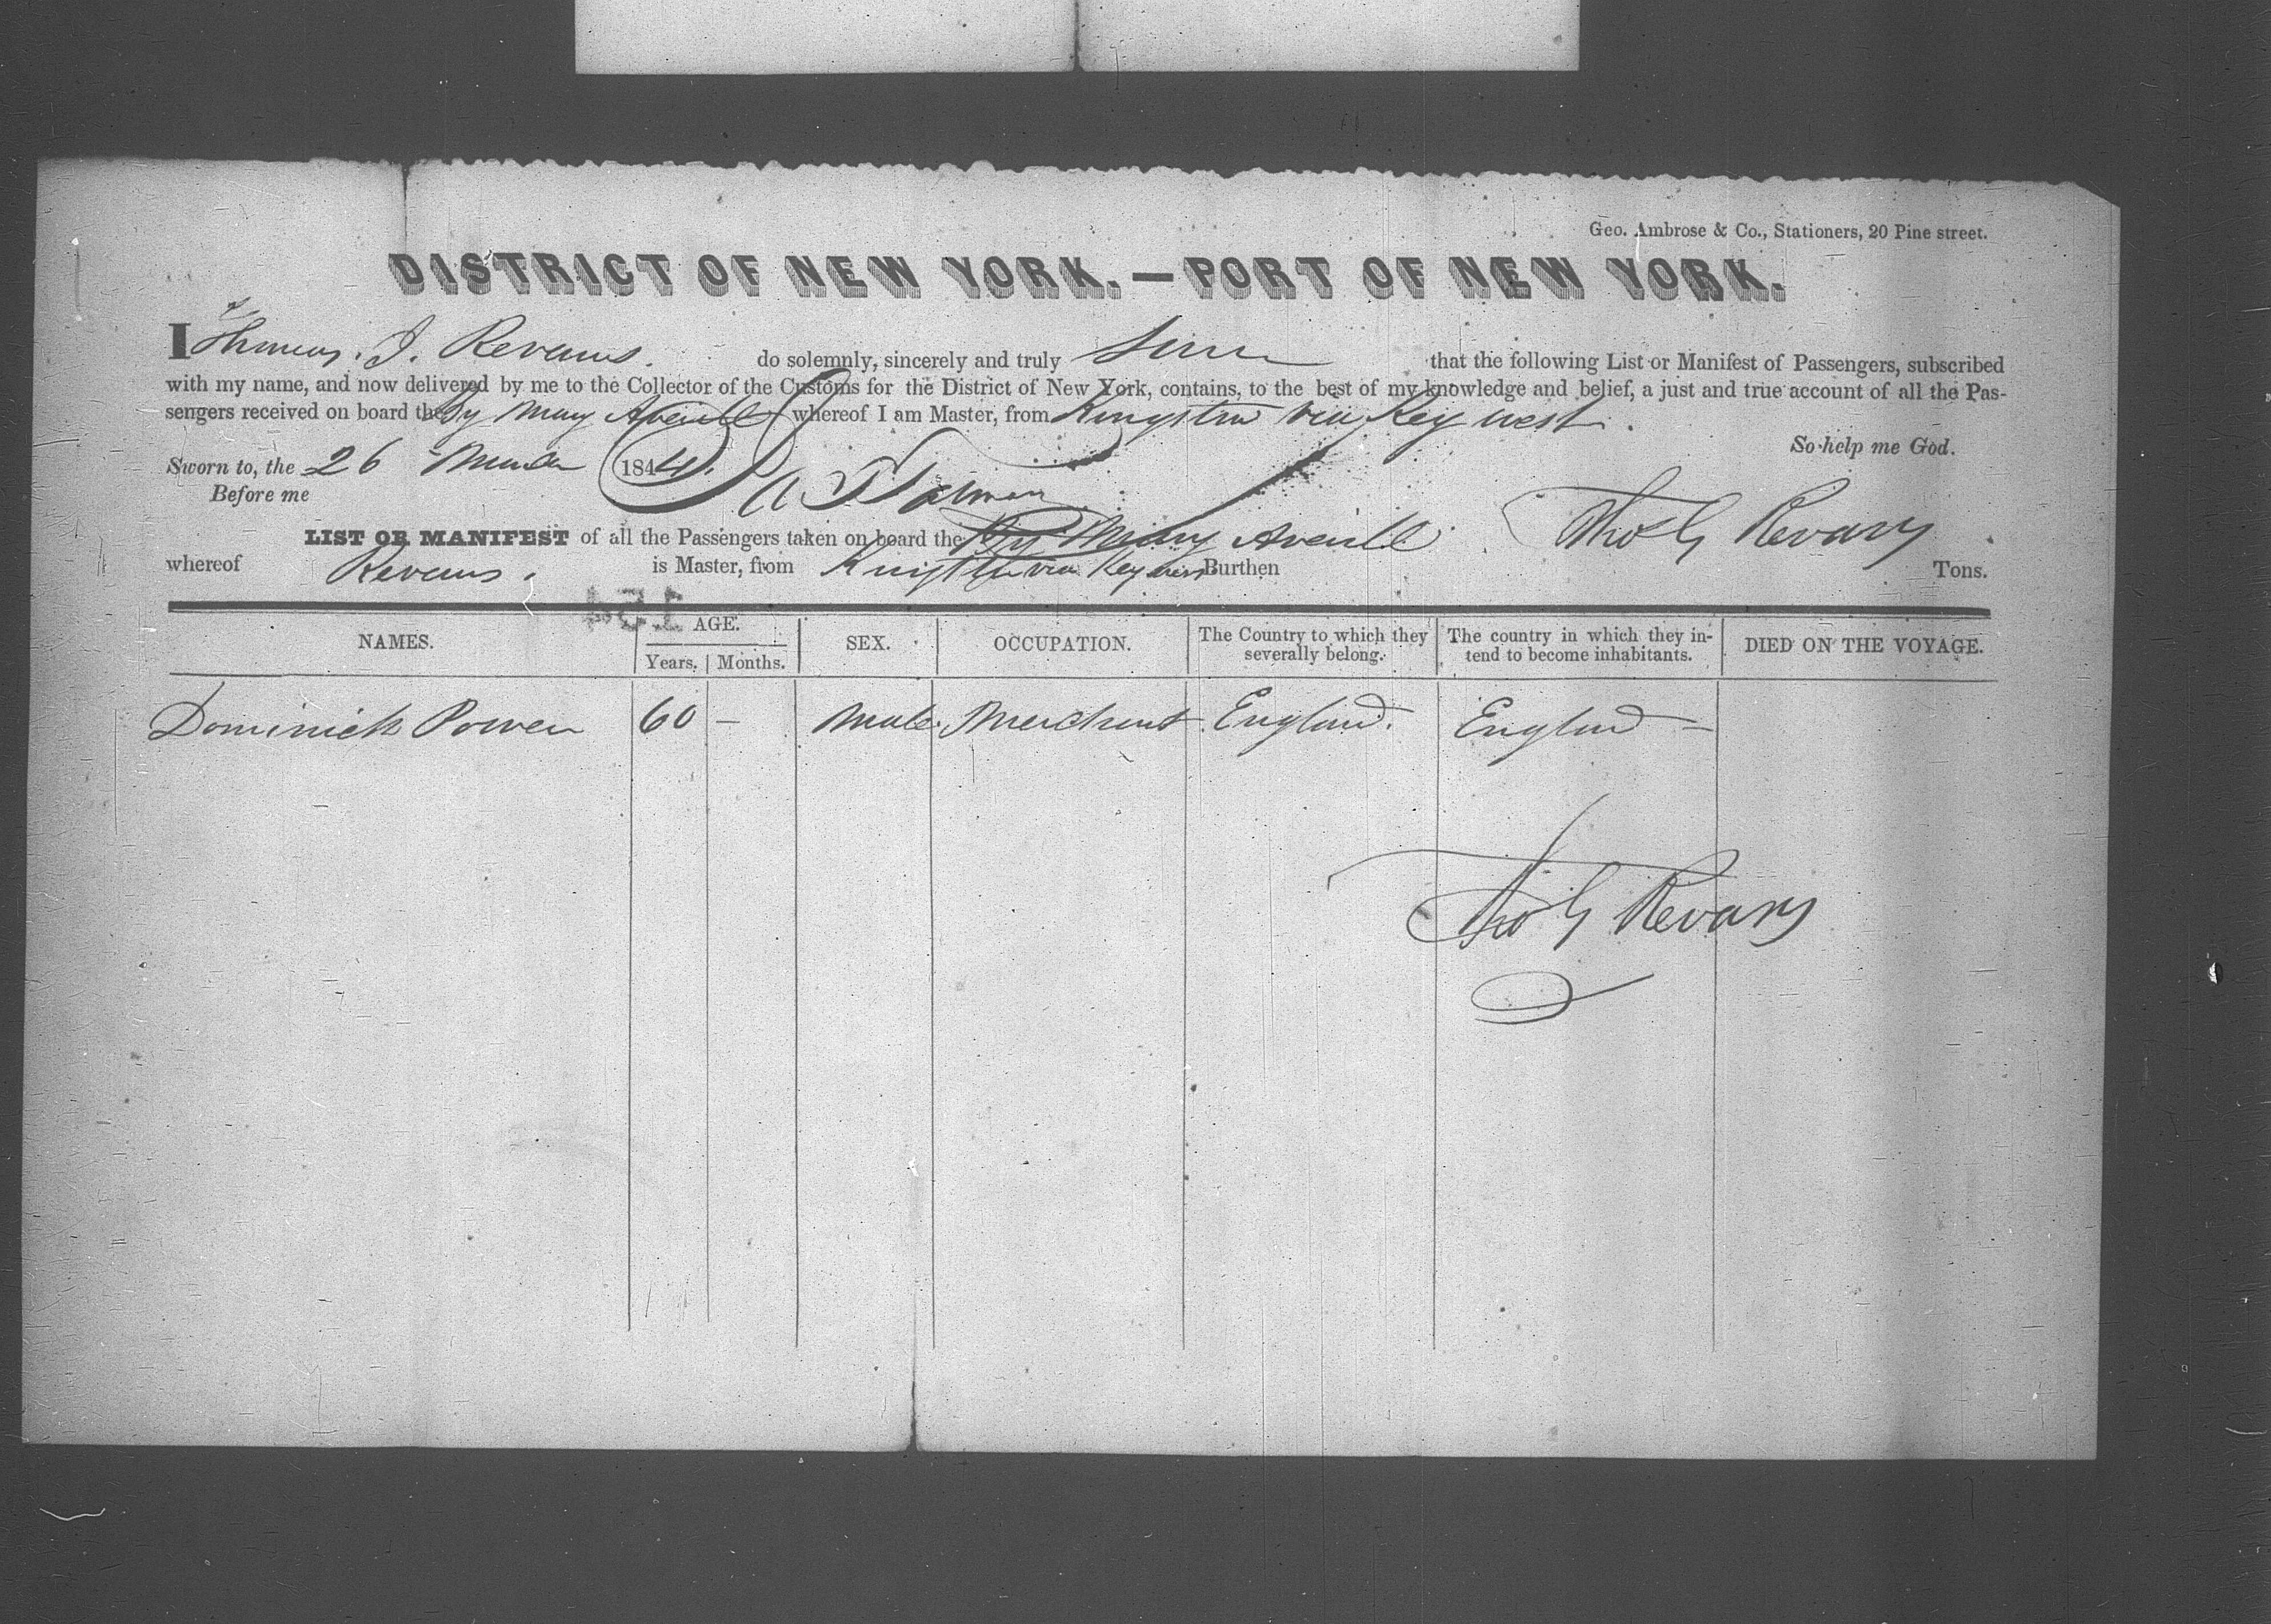 Geo. Ambrose & Co., Stationers, 20 Pine street.
DISTRICT OF NEW YORK.—PORT OF NEW YORK.
I Thomas. J. Revans. do solemnly, sincerely and truly that the following List or Manifest of Passengers, subscribed
with my name, and now delivered by me to the Collector of the Customs for the District of New York, contains, to the best of my knowledge and belief, a just and true account of all the Pas-
sengers received on board the Mary Averill whereof I am Master, from Kingston via Key west.
So help me God.
Sworn to, the 26 March 1844.
Before me
LIST OR MANIFEST of all the Passengers taken on board the Mary Averill
Thos G Revans
whereof Revans. is Master, from Kingston via Key west Burthen Tons.
154
NAMES. AGE. SEX. OCCUPATION. The Country to which they severally belong. The country in which they in-tend to become inhabitants. DIED ON THE VOYAGE.
Years. Months.
Dominick Power 60 — Male Merchant England. England —
Thos G Revans